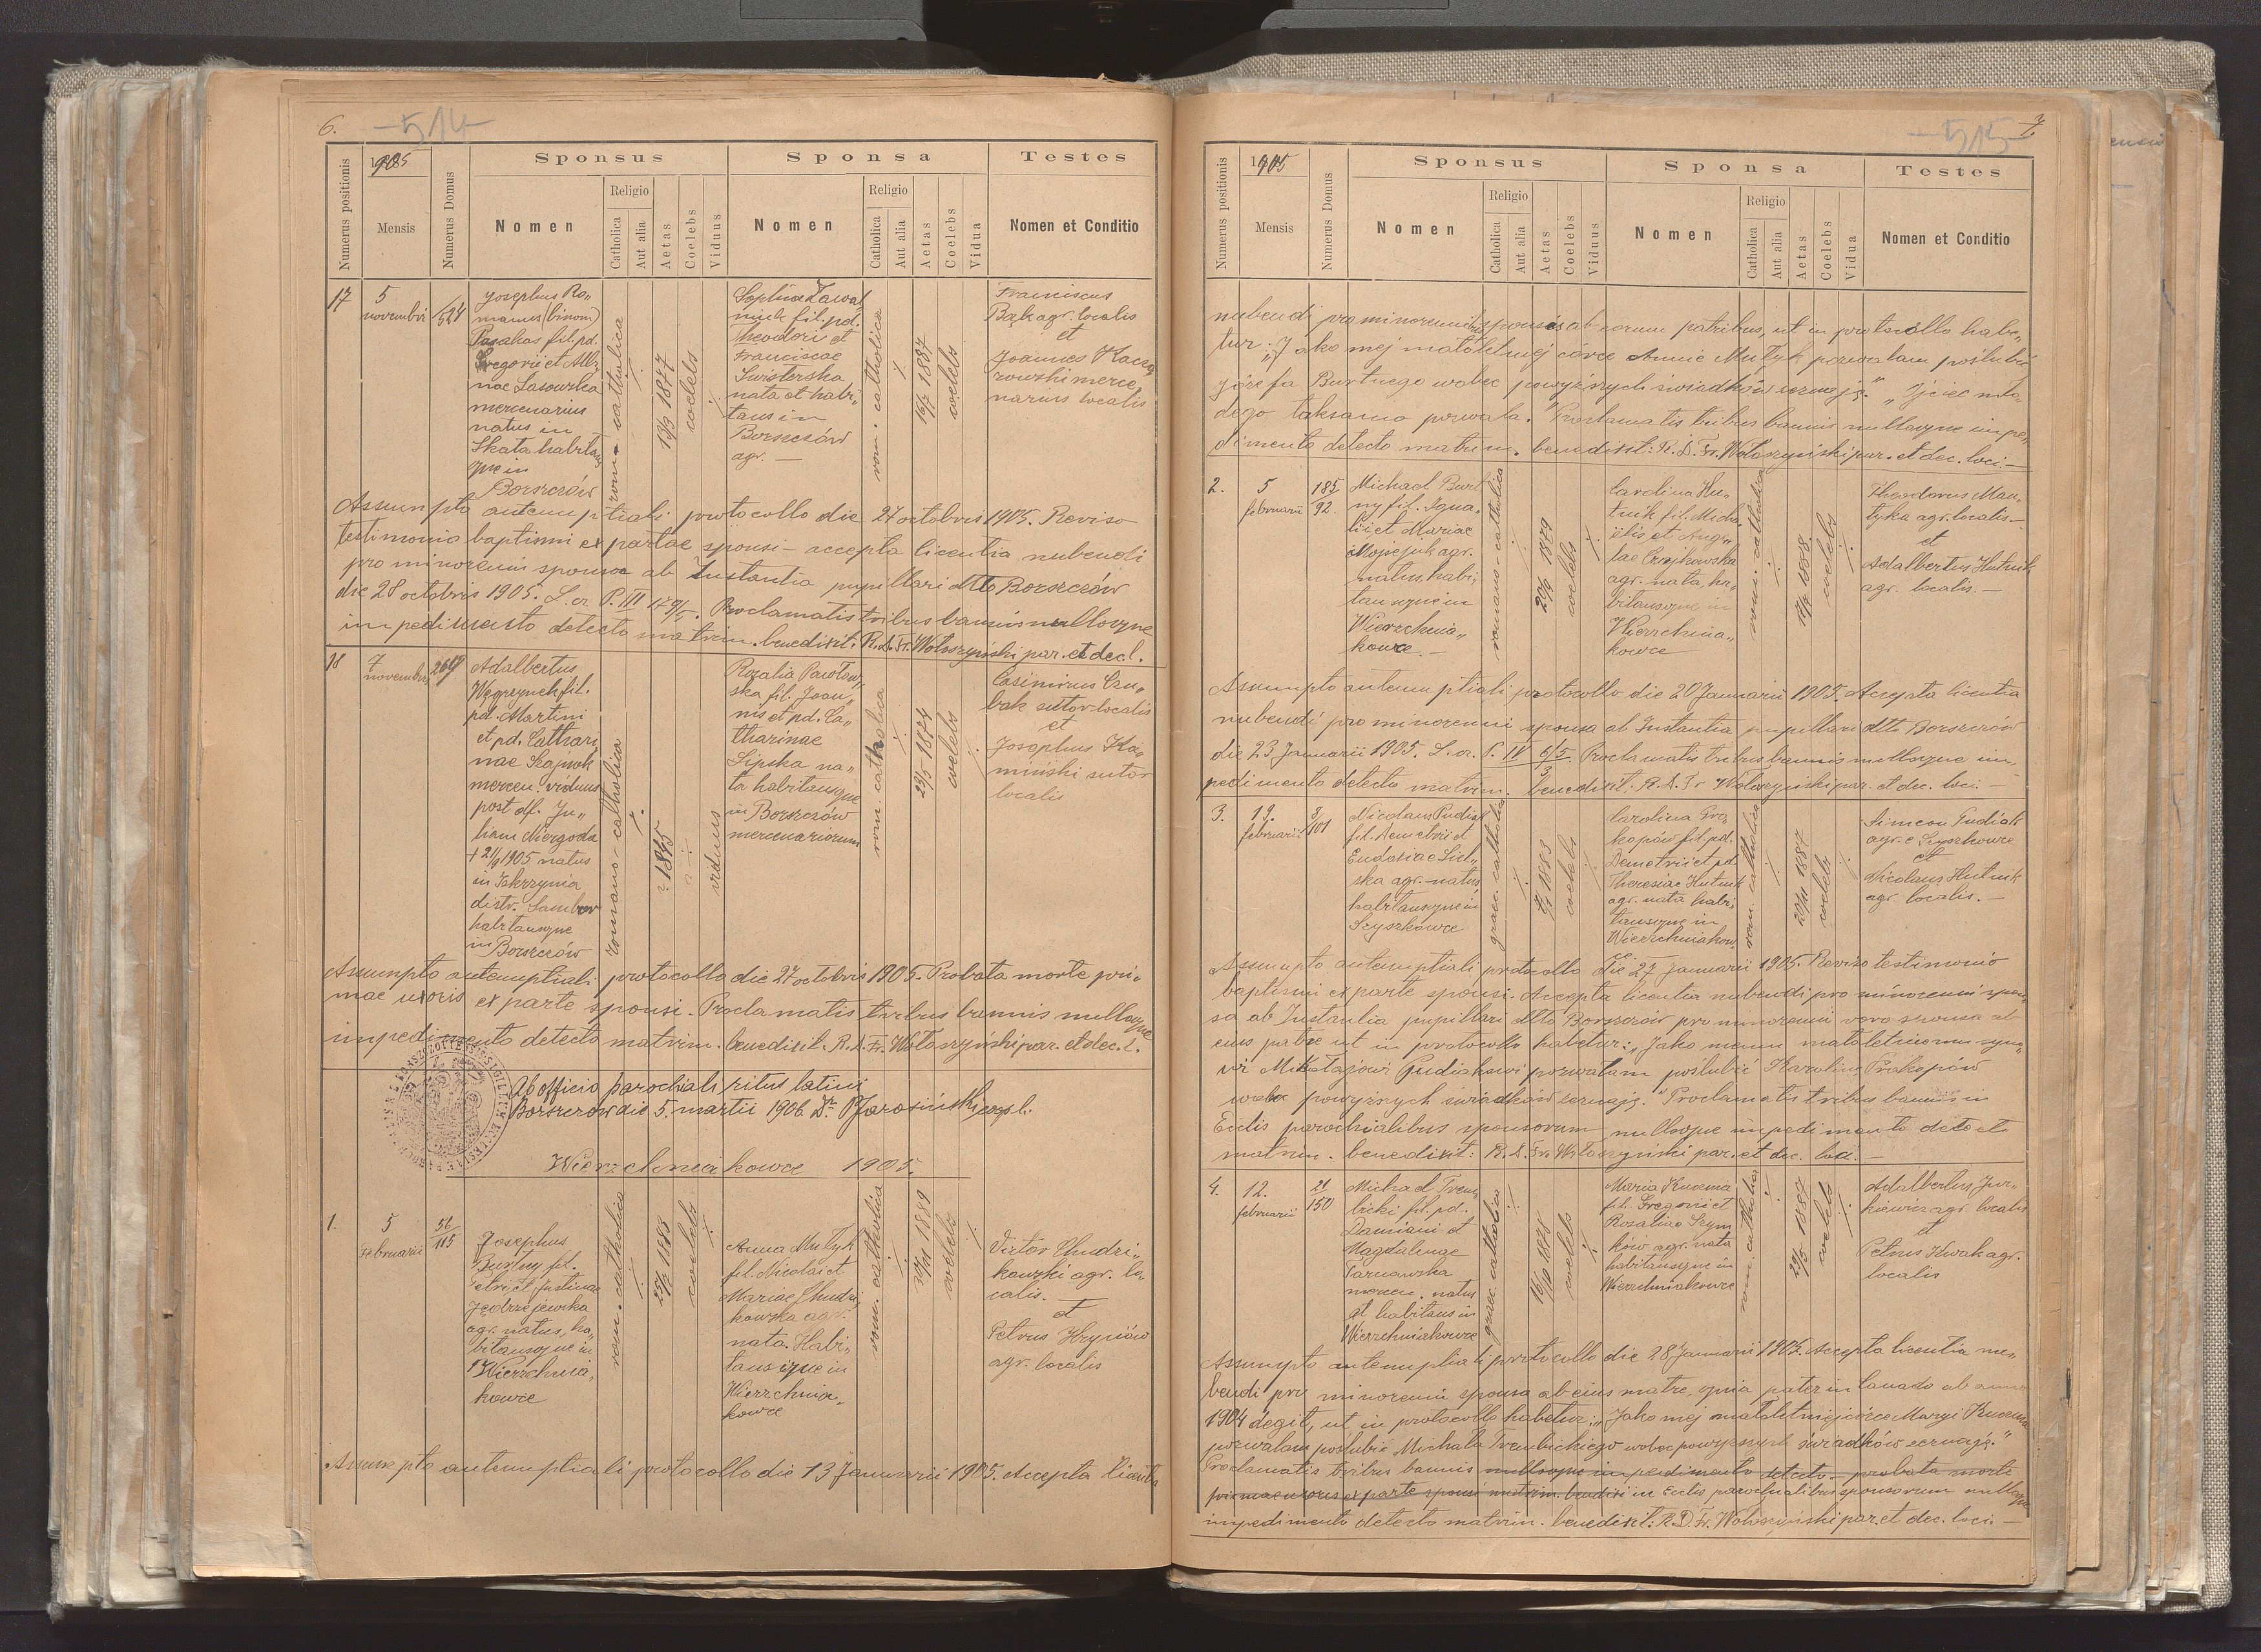 6.
514
Numerus positionis
1905
Mensis
Numerus Domus
Sponsus
Nomen
Religio
Catholica
Aut alia
Aetas
Coelebs
Viduus
Sponsa
Nomen
Religio
Catholica
Aut alia
Aetas
Coelebs
Vidua
Testes
Nomen et Conditio
17
5
novembri
524
Josephus Ro„
manus (binom)
fil. pd.
Gregorii et Alb„
nae Sasowska
mercenarius
natus in
Skała habitans
que in
Borszczów
rom. catholica
13/3 1877
coelebs
Sophia
fil. pd.
Theodori et
Franciscae
Swisterska
nata et habi„
tans in
Borszczów
agr. —
rom. catholica
16/7 1887
coelebs
Franciscus
Bąk agr. localis
et
Joannes Kacza
rowski merce„
narius localis
Assumpto antenuptiali protocollo die 27 octobris 1905. Reviso
testimonio baptismi ex partae sponsi – accepta licentia nubendi
pro minorenni sponsa ab Instantia pupillari dtto Borszczów
die 28 octobris 1905. L. cz. P. III 179/5. Proclamatis tribus bannis nulloque
impedimento detecto matrim. benedixit: R. D. Fr. Wołoszyński par. et dec. l.
18
7
novembri
264
Adalbertus
Węgrzynek fil.
pd. Martini
et pd. Cathari
nae Szajnok
mercen. viduus
post df. Ju„
liam Niezgoda
1905 natus
in Iskrzynia
distr. Sambor
habitansque
in Borszczów
romano-catholica
? 1845
viduus
Rozalia Pawłow„
ska fil. Joan„
nis et pd. Ca„
tharinae
Lipska na„
ta habitansque
in Borszczów
mercenariorum
rom catholica
29/5 1874
coelebs
Casimirus Czu„
bak sutor localis
et
Josephus Ka„
miński sutor
localis
Assumpto antenuptiali protocollo die 27 octobris 1905. Probata morte pri„
mae uxoris ex parte sponsi. Proclamatis tribus bannis nulloque
impedimento detecto matrim. benedixit. R. D. Fr. Wołoszyński par. et dec. l.
Ab officio parochiali ritus latini
Borszczów die 5. martii 1906. Dr. P. Jarosiński
Wierzchniakowce 1905.
1.
5
Februarii
56/115
Josephus
Burtny fil.
Petri et Justinae
Jędrzejewska
agr. natus, ha„
bitansque in
Wierzchnia„
kowce
rom. catholica
1883
coelebs
Anna Mułyk
fil. Nicolai et
Mariae Chudzi„
kowska agr.
nata. Habi„
tans ique in
Wierzchnia„
kowce
rom. catholica
1889
coelebs
Victor Chudzi„
kowski agr. lo„
calis. —
et
Petrus Hryniów
agr. localis
Assumpto antenuptiali protocollo die 13 Januarii 1905. Accepta licentia
7.
515
Numerus positionis
1905
Mensis
Numerus Domus
Sponsus
Nomen
Religio
Catholica
Aut alia
Aetas
Coelebs
Viduus
Sponsa
Nomen
Religio
Catholica
Aut alia
Aetas
Coelebs
Vidua
Testes
Nomen et Conditio
nubendi pro minorennibus sponsis ab eorum patribus, ut in protocollo habe„
tur: „Jako mej małoletniej córce Annie Mułyk pozwalam poślubić
Józefa Burtnego wobec powyższych świadków zeznaję." „Ojciec mło„
dego taksamo pozwala." Proclamatis tribus bannis nulloque impe„
dimento detecto matrim. benedixit: R. D. Fr. Wołoszyński par. et dec. loci. —
2.
5
februarii
185/92.
Michael Burt
ny fil. Igna„
tii et Mariae
Mojsejuk agr.
natus, habi„
tansque in
Wierzchnia„
kowce. —
romano-catholica
1879
coelebs
Carolina Hu„
tnik fil. Micha„
ëlis et Ang„
lae Czajkowska
agr. nata, ha„
bitansque in
Wierzchnia„
kowce
rom. catholica
1888
coelebs
Theodorus Man„
tyka agr. localis —
et
Adalbertus Hutnik
agr. localis. —
Assumpto antenuptiali protocollo die 20 Januarii 1905. Accepta licentia
nubendi pro minorenni sponsa ab Instantia pupillari dtto Borszczów
die 23 Januarii 1905. L. cz. P. IV 6/5/3. Proclamatis tribus bannis nulloque im„
pedimento detecto matrim. benedixit: R. D. Fr Wołoszyński par. et dec. loci. —
3.
12.
februarii
8/101
Nicolaus Pudiak
fil. Demetrii et
Eudoxiae Siel„
ska agr. natus
habitansque in
Szyszkowce
graec. catholica
1883
coelebs
Carolina Pro„
kopów fil. pd.
Demetrii et pd
Theresiae Hutnik
agr. nata habi„
tansque in
Wierzchniakow„
ce
rom. catholica
20/11 1887
coelebs
Simeon Pudiak
agr. e Szyszkowce
et
Nicolaus Hutnik
agr. localis. —
Assumpto antenuptiali protocollo die 27 Januarii 1905. Reviso testimonio
baptismi ex parte sponsi. Accepta licentia nubendi pro minorenni spon„
sa ab Instantia pupillari dtto Borszczów pro minorenni vero sponso ab
eius patre ut in protocollo habetur: „Jako memu małoletniemu syno„
wi Mikołajowi Pudiakowi pozwalam poślubić Karolinę Prokopów
wobec powyższych świadków zeznaję." Proclamatis tribus bannis in
Ecclis parochialibus sponsorum nulloque impedimento detecto
matrim. benedixit: R. D. Fr. Wołoszyński par. et dec. loci. —
4.
12.
februarii
21/150
Michael Trem„
bicki fil. pd.
Damiani et
Magdalenae
Tarnawska
mercen. natus
et habitans in
Wierzchniakowce
graec. catholica
coelebs
Maria Kuzma
fil. Gregorii et
Rozaliae Szym
ków agr. nata
habitansque in
Wierzchniakowce
rom. catholica
1887
coelebs
Adalbertus Jur„
kiewicz agr. localis
et
Petrus Nowak agr.
localis
Assumpto antenuptiali protocollo die 28 Januarii 1905. Accepta licentia nu„
bendi pro minorenni sponsa ab eius matre, quia pater in Canada ab anno
1904 degit, ut in protocollo habetur: „Jako mej małoletniej córce Maryi Kuzma
pozwalam poślubić Michała Trembickiego wobec powyższych świadków zeznaję."
Proclamatis tribus bannis nulloque impedimento detecto – probata morte
primae uxoris ex parte sponsi matrim. benedixi in Ecclis parochialibus sponsorum nulloque
impedimento detecto matrim. benedixit: R. D. Fr. Wołoszyński par. et dec. loci. —